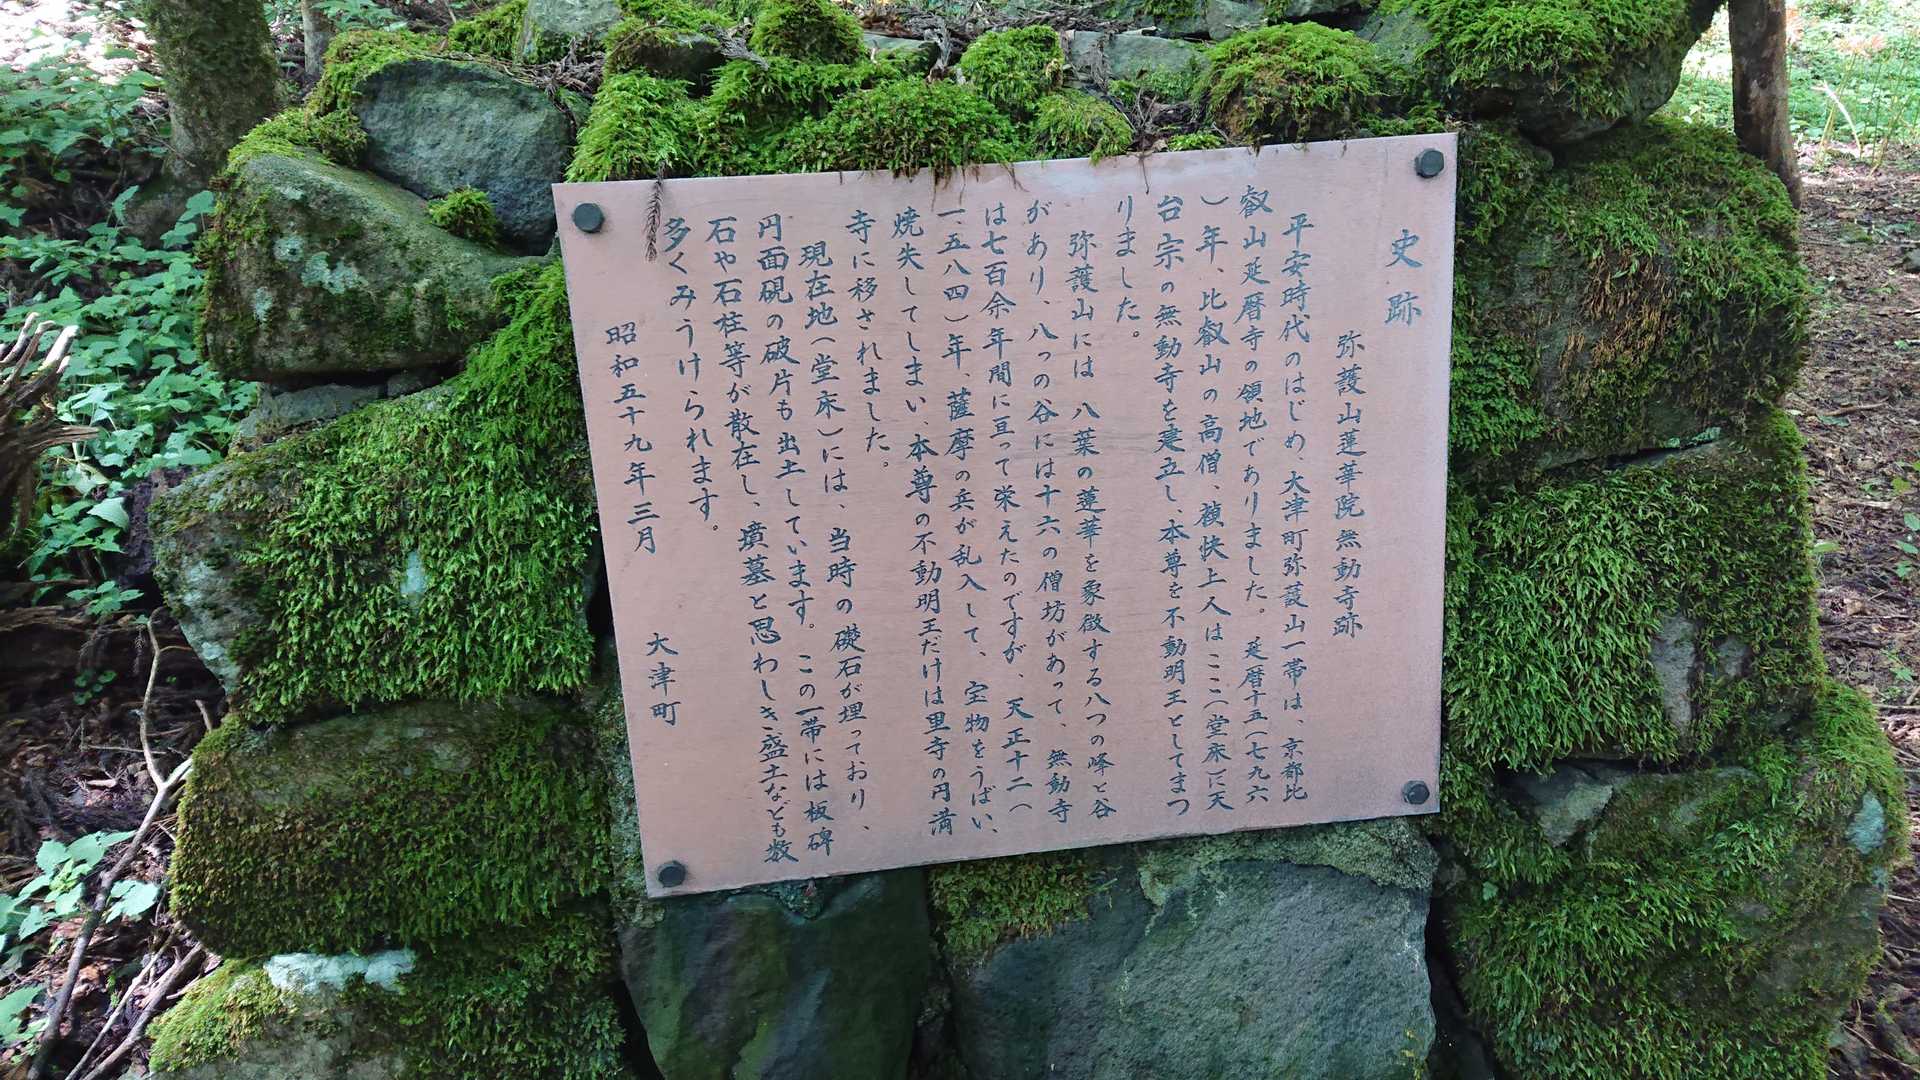 史跡
弥護山蓮華院無動寺跡
平安時代のはじめ、大津町弥護山一帯は、京都比
叡山延暦寺の領地でありました。延暦十五(七九六
)年、比叡山の高僧、禎快上人はここ(堂床)に天
台宗の無動寺を建立し、本尊を不動明王としてまつ
りました。
弥護山には八葉の蓮華を象徴する八つの峰と谷
があり、八っの谷には十六の僧坊があって、無動寺
は七百余年間に亘って栄えたのですが、天正十二(
一五八四)年、薩摩の兵が乱入して、宝物をうばい、
焼失してしまい、本尊の不動明王だけは里寺の円満
寺に移されました。
現在地(堂床)には、当時の礎石が埋っており、
円面硯の破片も出土しています。この一帯には板碑
石や石柱等が散在し、墳墓と思わしき盛土なども数
多くみうけられます。
昭和五十九年三月
大津町